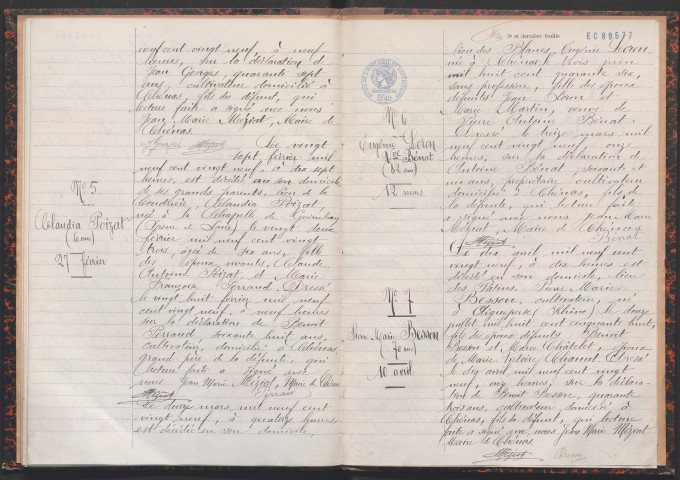 neuf cent vingt neuf, à neuf
heures, sur la déclaration de
Jean Georges, quarante sept
ans, cultivateur domicilié à
Chénas, fils du défunt, qui
lecture faite a signé avec nous
Jean Marie Méziat, Maire de
Chénas.
Méziat
N° 5
Claudia Poizat
(6 ans)
27 février
Le vingt
sept février mil
neuf cent vingt neuf, à dix sept
heures, est décédée au domicile
de ses grands parents, lieu de la
Claudia Poizat,
née à La Chapelle de Guinchay
(Saône et Loire) le vingt deux
février mil neuf cent vingt
trois, âgée de six ans, fille
des époux vivants, Claude
Antoine Poizat, et Marie
Françoise Perraud. Dressé
le vingt huit février mil neuf
cent vingt neuf, à neuf heures
sur la déclaration de Benoît
Perraud soixante huit ans,
cultivateur, domicilié à Chénas,
grand père de la défunte, qui
lecture faite a signé avec
nous Jean Marie Méziat, Maire de Chénas
Méziat
Perraud
Le douze mars, mil neuf cent
vingt neuf, à quatorze heures,
est décédée en son domicile,
3e et dernière feuille
EC89577
N° 6
Eugénie Loron
Vve Bénat
(82 ans)
12 mars
lieu des Blancs, Eugénie Loron
née à Chénas le trois juin
mil huit cent quarante six,
sans profession, fille des époux
défunts Jean Loron et
Marie Martin, veuve de
Pierre Antoine Bénat.
Dressé le treize mars mil
neuf cent vingt neuf, onze
heures, sur la déclaration de
Antoine Bénat, soixante et
un ans, propriétaire cultivateur
domicilié à Chénas, fils de
la défunte, qui lecture faite
a signé avec nous Jean Marie
Méziat, Maire de Chénas
Méziat
Bénat
N° 7
Pierre Marie Besson
(70 ans)
10 avril
Le dix avril, mil neuf cent
vingt neuf, à dix heures est
décédé en son domicile, lieu
des Pierre Marie
Besson, cultivateur, né
à Aigueperse (Rhône) le douze
juillet mil huit cent cinquante huit,
fils des époux défunts Benoît
Besson et Marie Châtelet, époux
de Marie Victoire Dressé
le dix avril mil neuf cent vingt
neuf, onze heures, sur la déclara-
tion de Benoît Besson, quarante
trois ans, cultivateur domicilié à
Chénas, fils du défunt, qui lecture
faite a signé avec nous Jean Marie Méziat
Maire de Chénas
Méziat